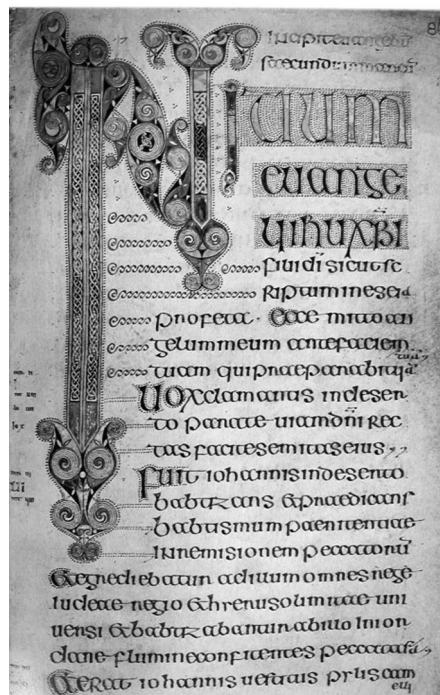 secundum marcū
INITIUM
euange
lii ihu xpi
filii di sicut sc
riptum in eseia
profeta · Ecce mitto an
gelum meum ante faciem
tuam qui praeparabit uiā
tuā
Uox clamantis in deser
to parate uiam dn̄i rec
tas facite semitas eius
Fuit iohannis in deserto
babtizans & praedicans
babtismum paenitentiae
in remisionem peccatorū
& egrediebatur ad illum omnes rege
iudeae regio & hierusolimitae uni
uersi & babtizabantur ab illo in ior
dane flumine confitentes peccata sua
& erat iohannis uestitus pylis cam
eli